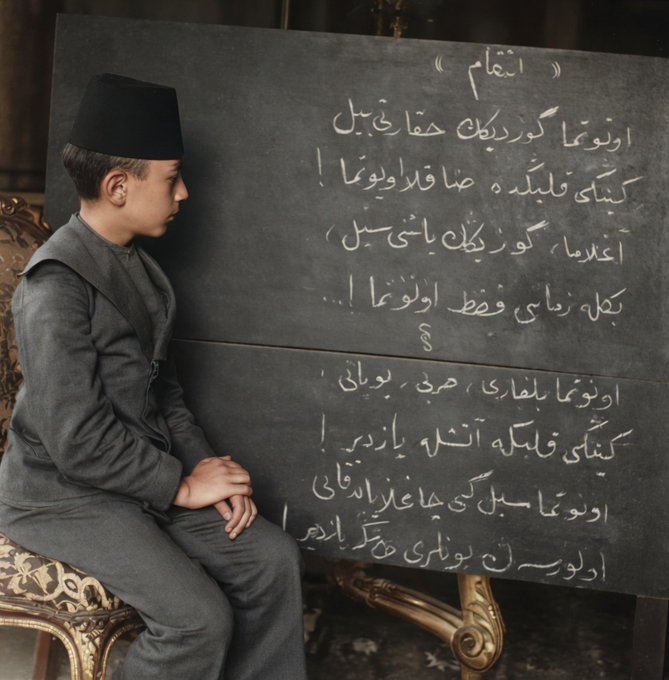 « انتقام »
اونوتما گوردیكڭ حقارتی بیل
كینڭی قلبڭده صاقلا اویوتما !
آغلاما، گوزیڭك یاشنی سیل،
بكله زمانی فقط اونوتما !...
§
اونوتما بلغاری، صربی، یونانی،
كینڭی قلبڭه آتشله یازدیر !
اونوتما سیل گبی چاغلایان قانی
اولورسه ڭ بونلری یازدیر !